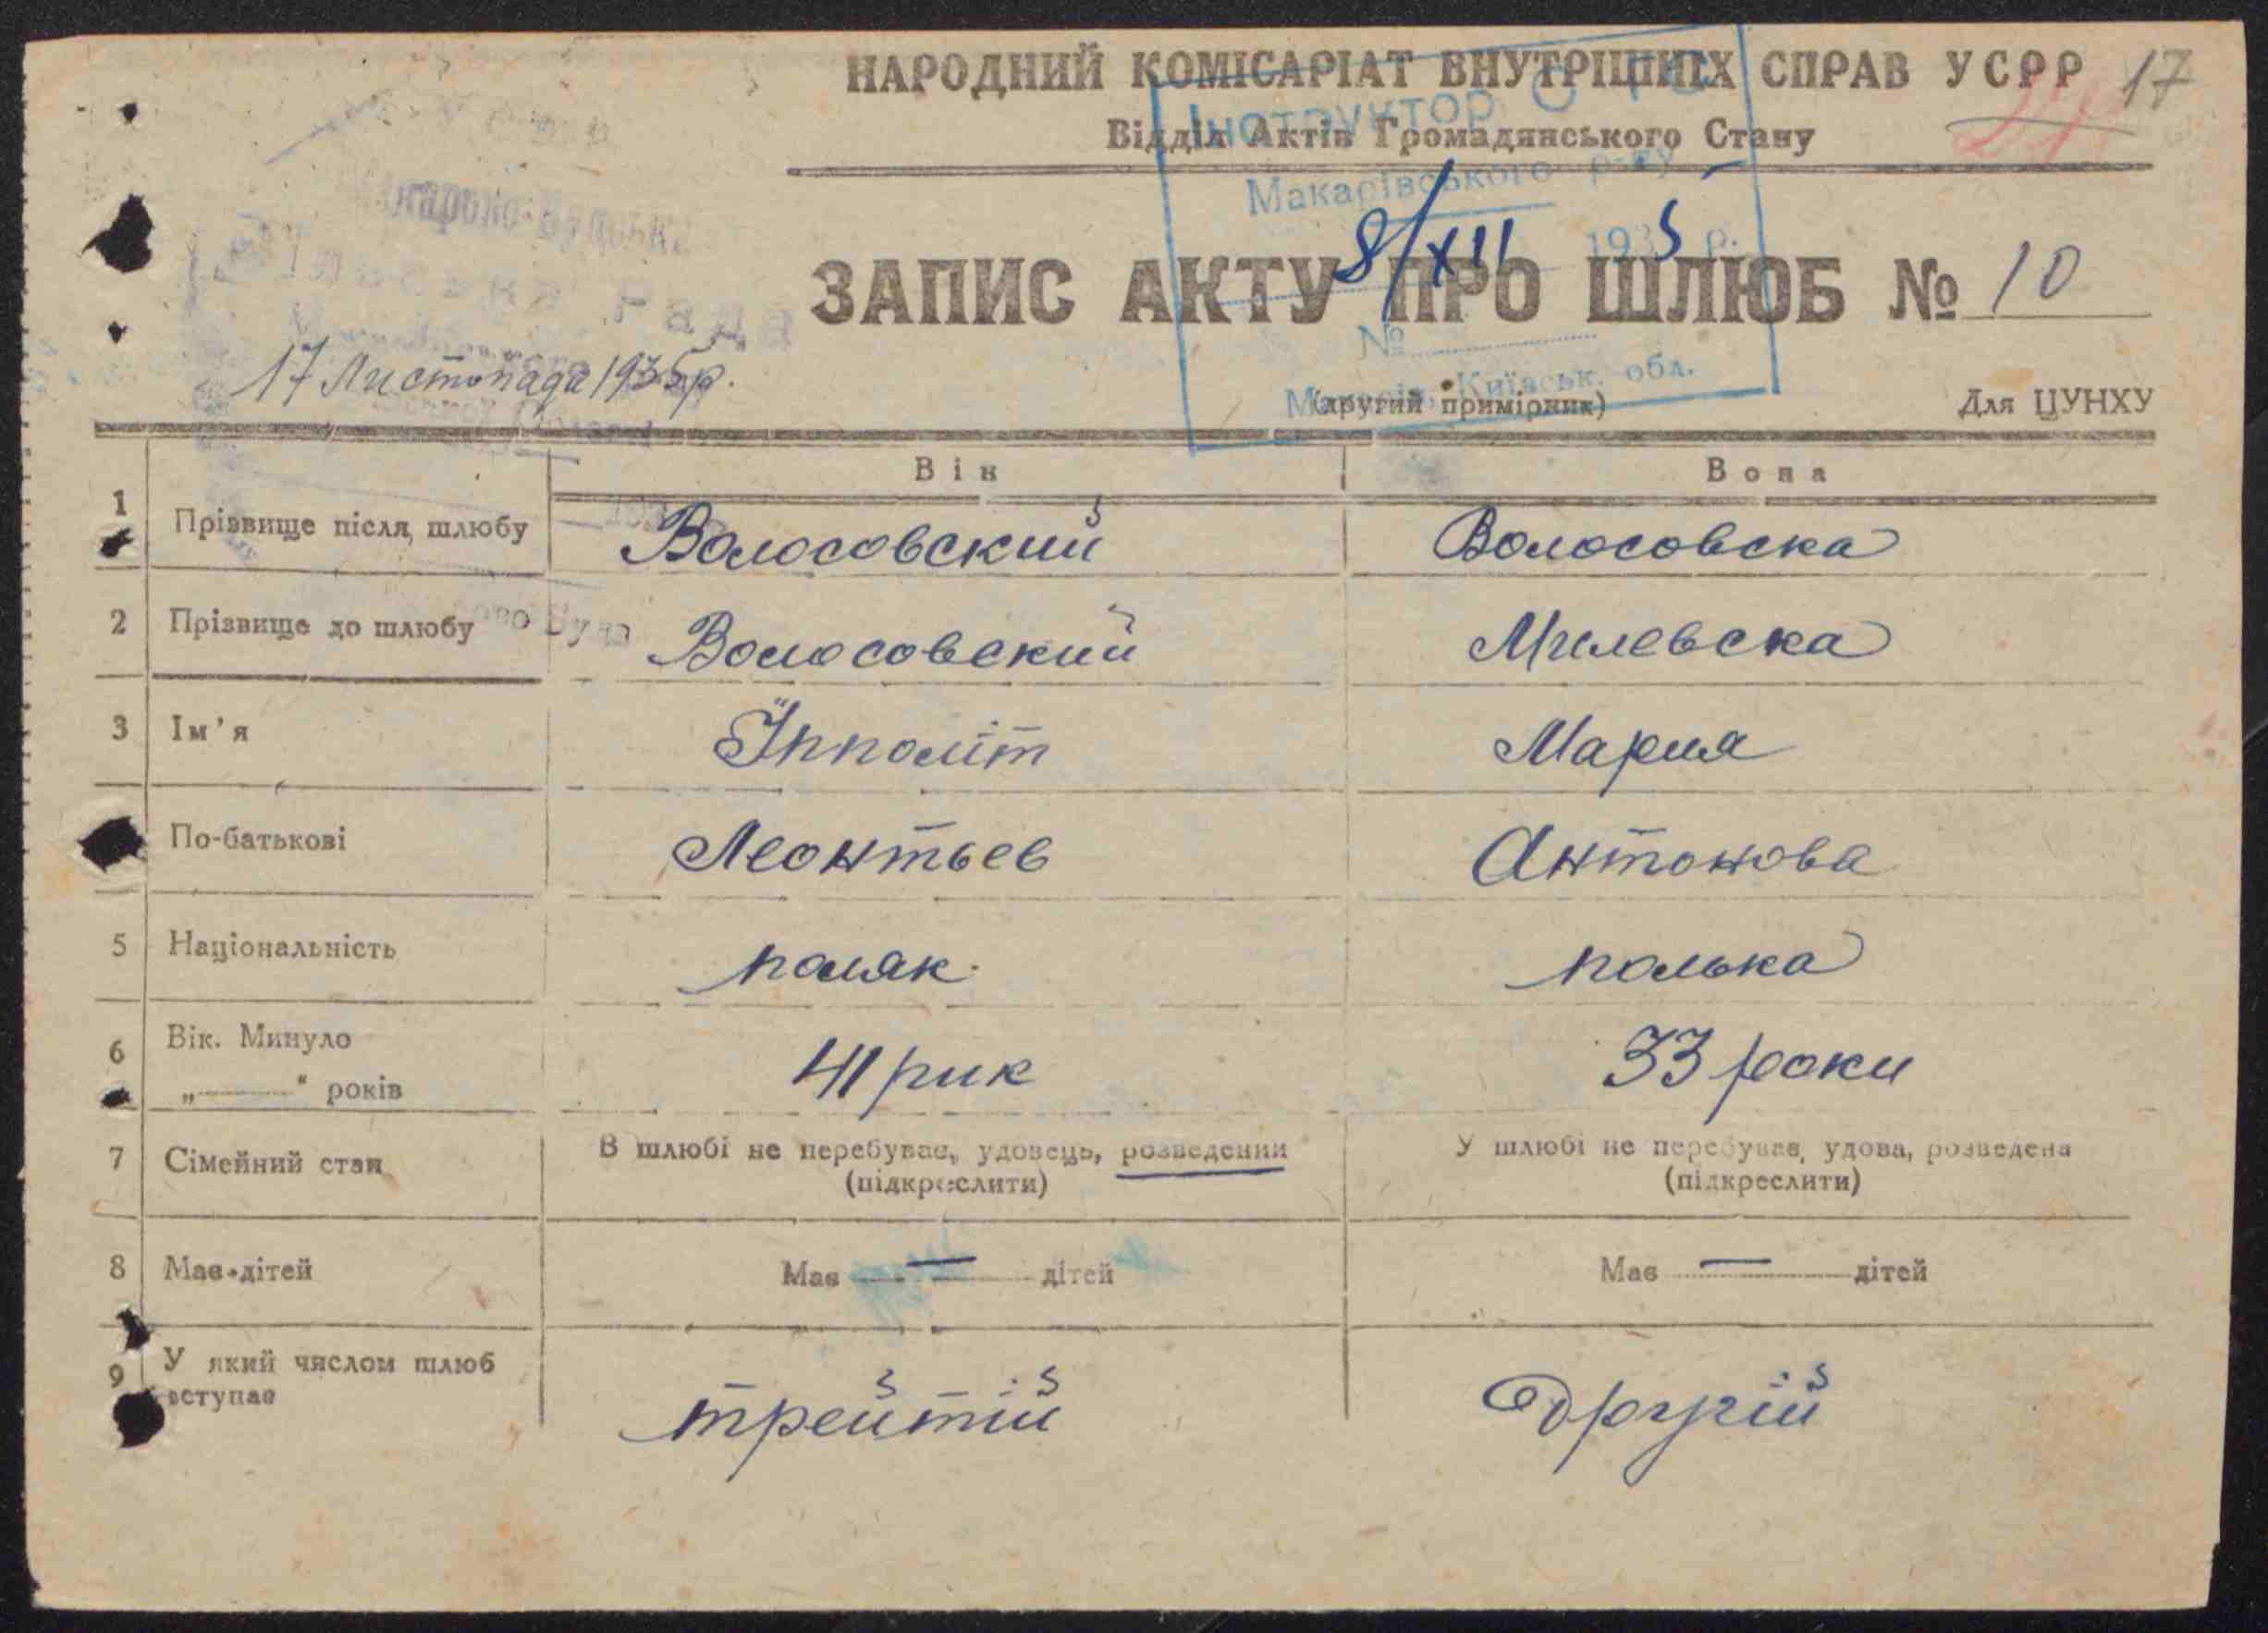 НАРОДНИЙ КОМІСАРІАТ ВНУТРІШНІХ СПРАВ УСРР 17
Відділ Актів Громадянського Стану
Інструктор
Макарівського р-ну
8/XII 1935 р.
Рада
ЗАПИС АКТУ ПРО ШЛЮБ № 10
№
17 Листопада 1935р.
Київськ. обл.
(другий примірник)
Для ЦУНХУ
Він Вона
1 Прізвище після шлюбу Волосовский Волосовска
2 Прізвище до шлюбу Волосовский Милевска
3 Ім'я Їпполіт Мария
По-батькові Леонтьев Антонова
5 Національність поляк. полька
6 Вік. Минуло „—" років 41 рик 33 роки
7 Сімейний стан В шлюбі не перебуває, удовець, розведений (підкреслити) У шлюбі не перебуває, удова, розведена (підкреслити)
8 Має дітей Має — дітей Має — дітей
9 У який числом шлюб вступає трейтій другій